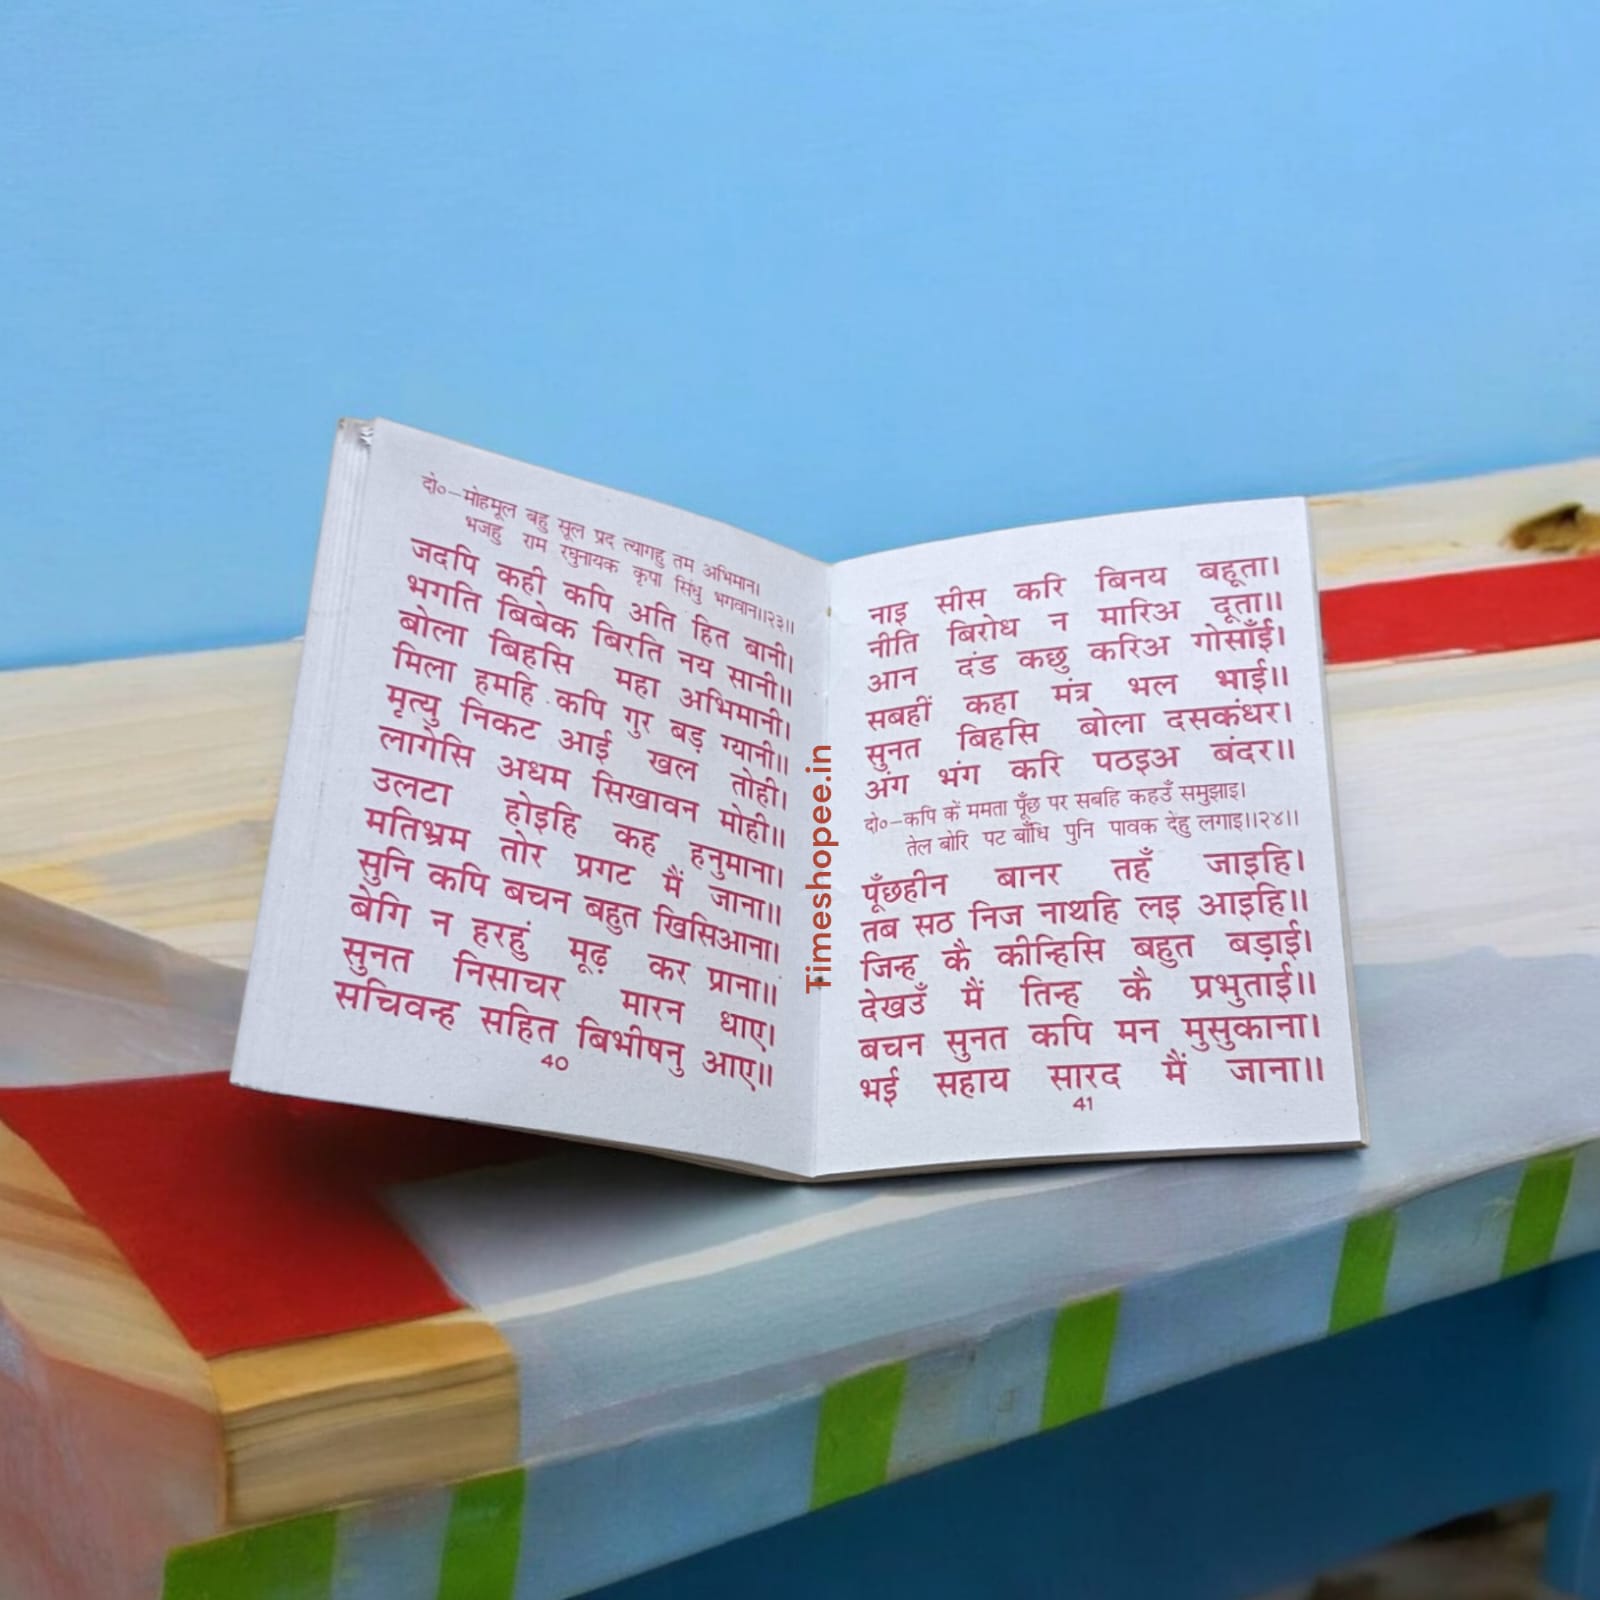 दो०–मोहमूल बहु सूल प्रद त्यागहु तम अभिमान।
भजहु राम रघुनायक कृपा सिंधु भगवान॥२३॥
जदपि कही कपि अति हित बानी।
भगति बिबेक बिरति नय सानी॥
बोला बिहसि महा अभिमानी।
मिला हमहि कपि गुर बड़ ग्यानी॥
मृत्यु निकट आई खल तोही।
लागेसि अधम सिखावन मोही॥
उलटा होइहि कह हनुमाना।
मतिभ्रम तोर प्रगट मैं जाना॥
सुनि कपि बचन बहुत खिसिआना।
बेगि न हरहुं मूढ़ कर प्राना॥
सुनत निसाचर मारन धाए।
सचिवन्ह सहित बिभीषनु आए॥
40
नाइ सीस करि बिनय बहूता।
नीति बिरोध न मारिअ दूता॥
आन दंड कछु करिअ गोसाँई।
सबहीं कहा मंत्र भल भाई॥
सुनत बिहसि बोला दसकंधर।
अंग भंग करि पठइअ बंदर॥
दो०–कपि कें ममता पूँछ पर सबहि कहउँ समुझाइ।
तेल बोरि पट बाँधि पुनि पावक देहु लगाइ॥२४॥
पूँछहीन बानर तहँ जाइहि।
तब सठ निज नाथहि लइ आइहि॥
जिन्ह कै कीन्हिसि बहुत बड़ाई।
देखउँ मैं तिन्ह कै प्रभुताई॥
बचन सुनत कपि मन मुसुकाना।
भई सहाय सारद मैं जाना॥
41
Timeshopee.in